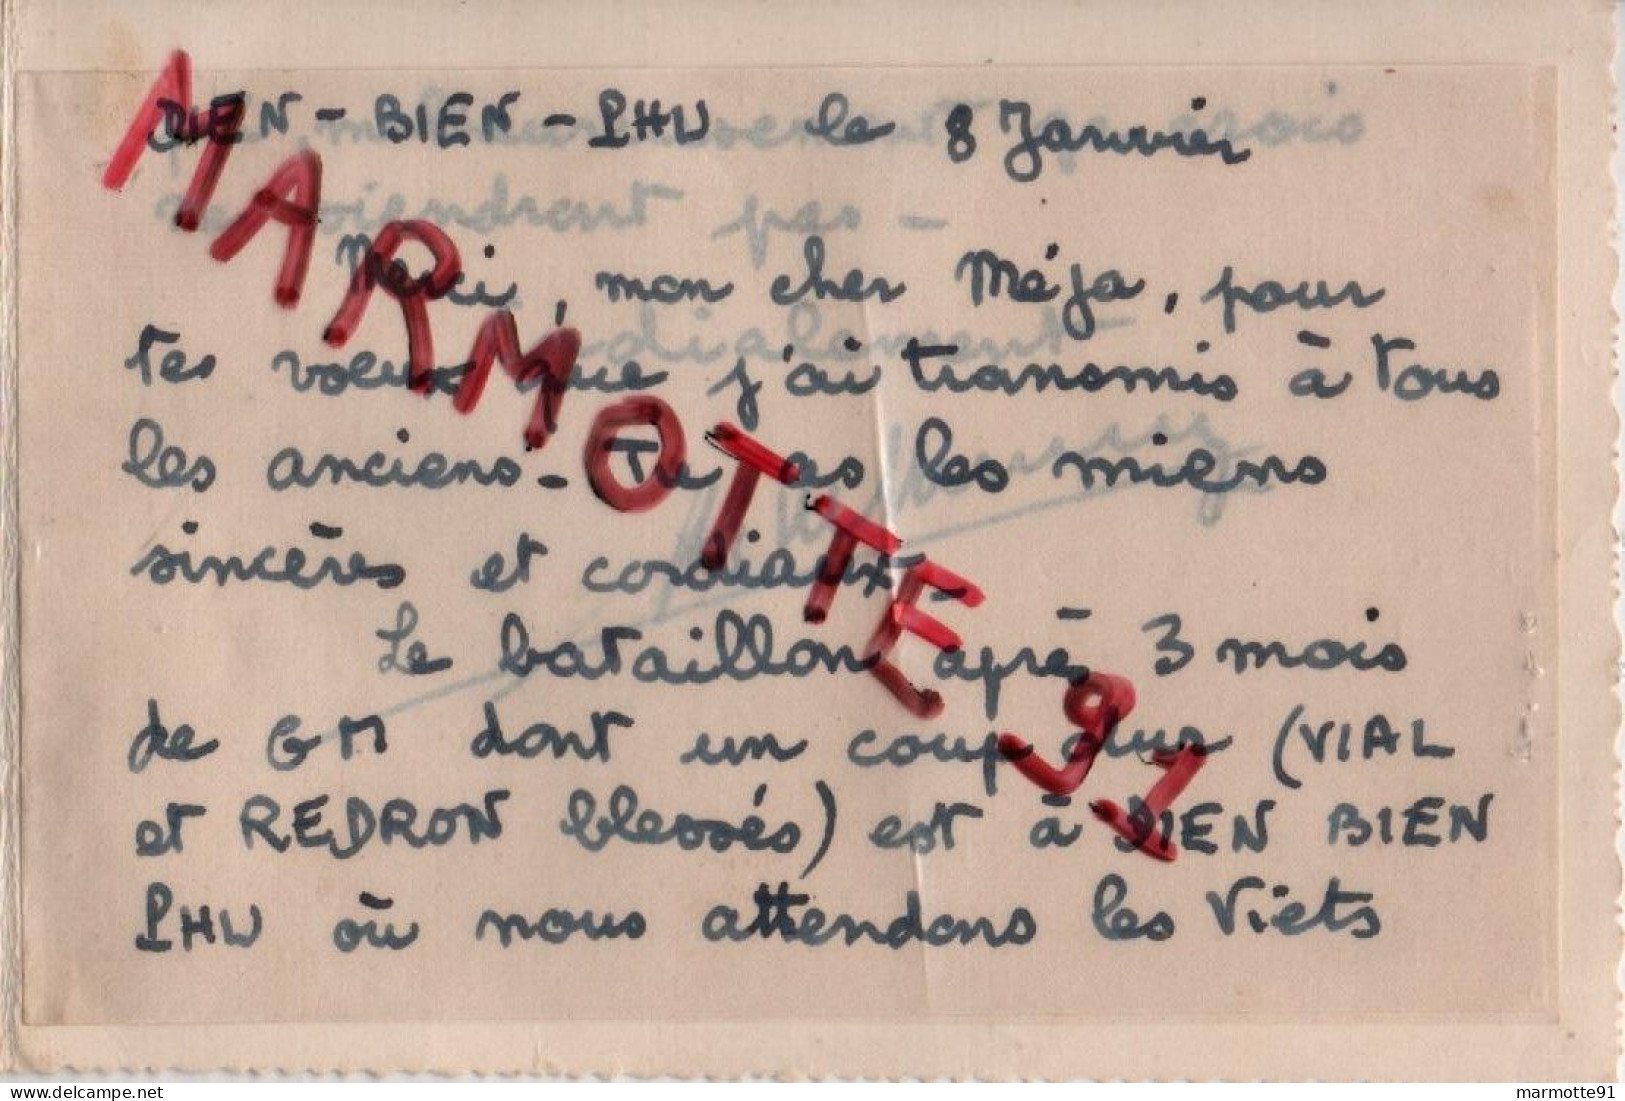 DIEN-BIEN-PHU le 8 Janvier
Merci, mon cher Méja, pour
tes voeux que j'ai transmis à tous
les anciens - Tu as les miens
sincères et cordiaux -
Le bataillon après 3 mois
de GM dont un coup dur (VIAL
et REDRON blessés) est à DIEN BIEN
PHU où nous attendons les Viets
MARMOTTE 91
viendront pas -
cordialement
marmotte91